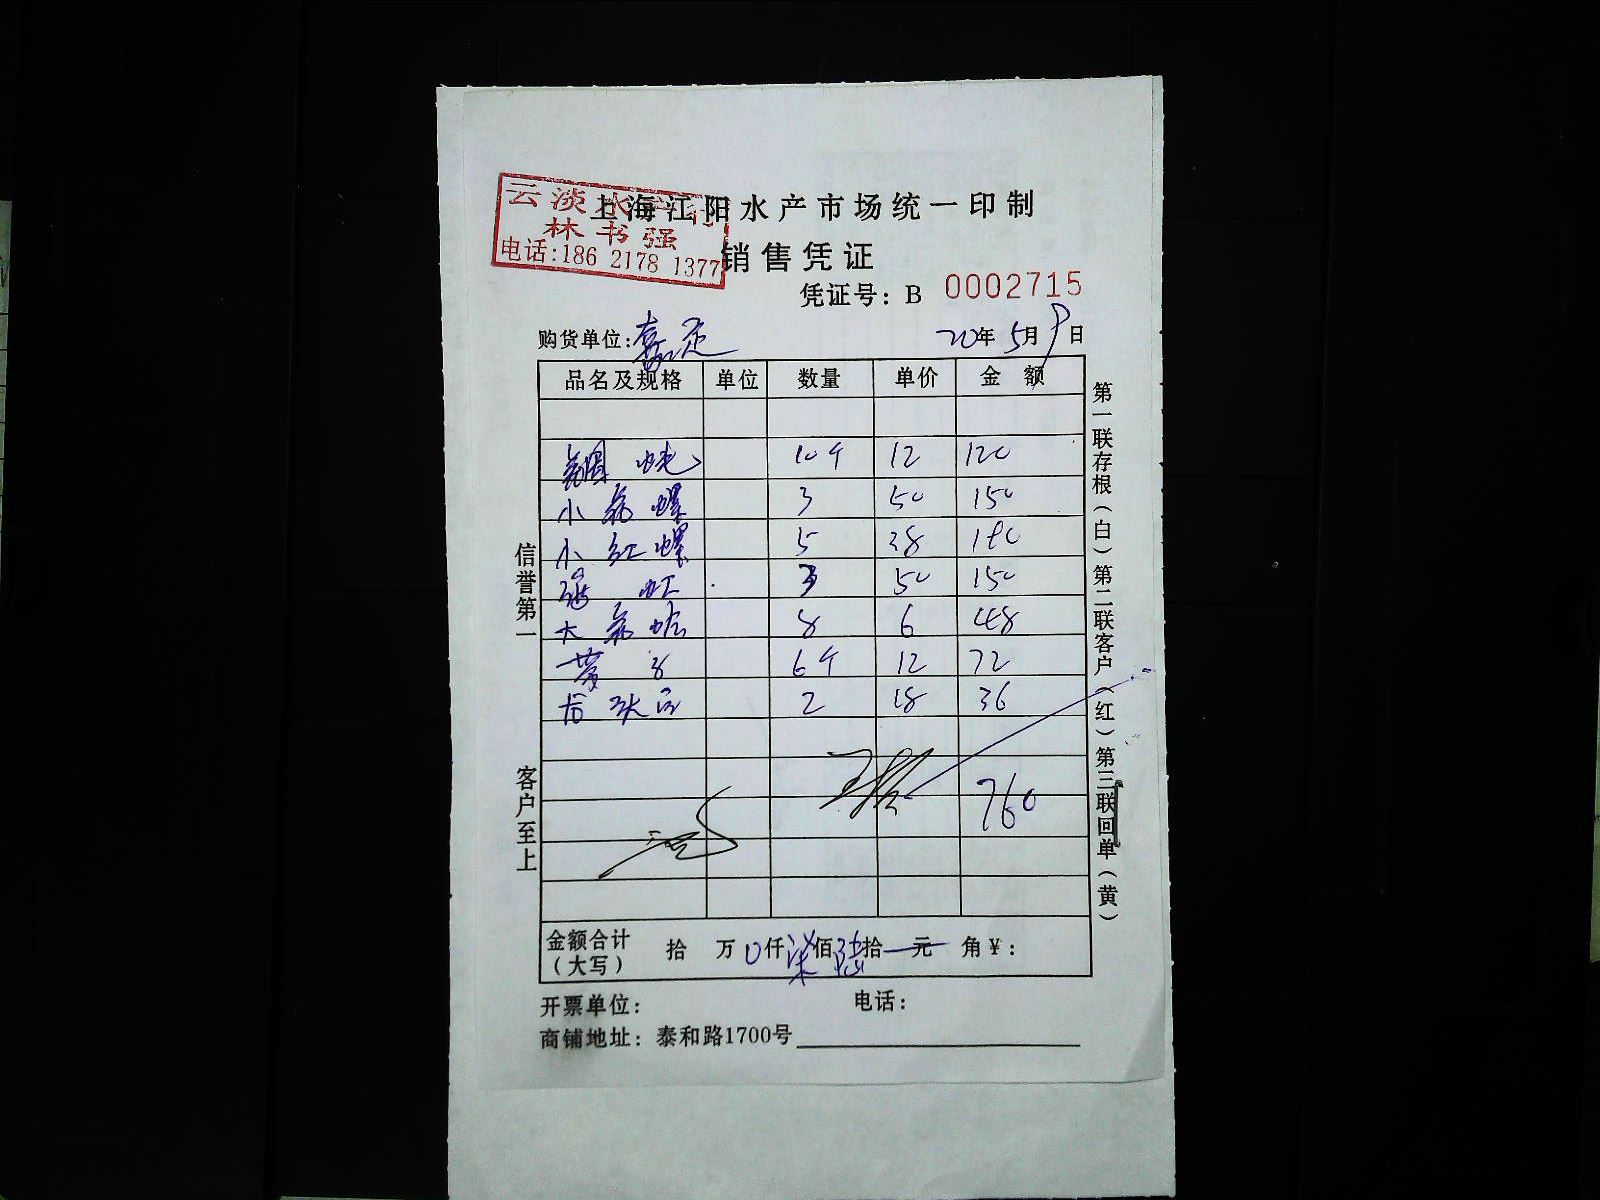 云淡水产行
林书强
电话:186 2178 1377
上海江阳水产市场统一印制
销售凭证
凭证号: B 0002715
购货单位: 嘉定 20年5月9日
品名及规格 单位 数量 单价 金额
10个 12 120
小花螺 3 50 150
小红螺 5 38 190
虾 3 50 150
大花蛤 8 6 48
6个 12 72
2 18 36
760
金额合计(大写) 拾 万 0仟 柒佰 陆拾 元 角 ¥:
开票单位: 电话:
商铺地址: 泰和路1700号
信誉第一
客户至上
第一联存根(白)第二联客户(红)第三联回单(黄)